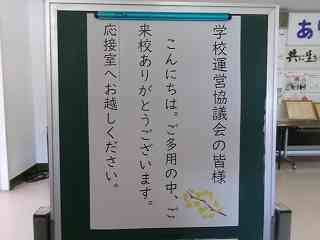 学校運営協議会の皆様
こんにちは。ご多用の中、ご
来校ありがとうございます。
応接室へお越しください。
あり
共に生き